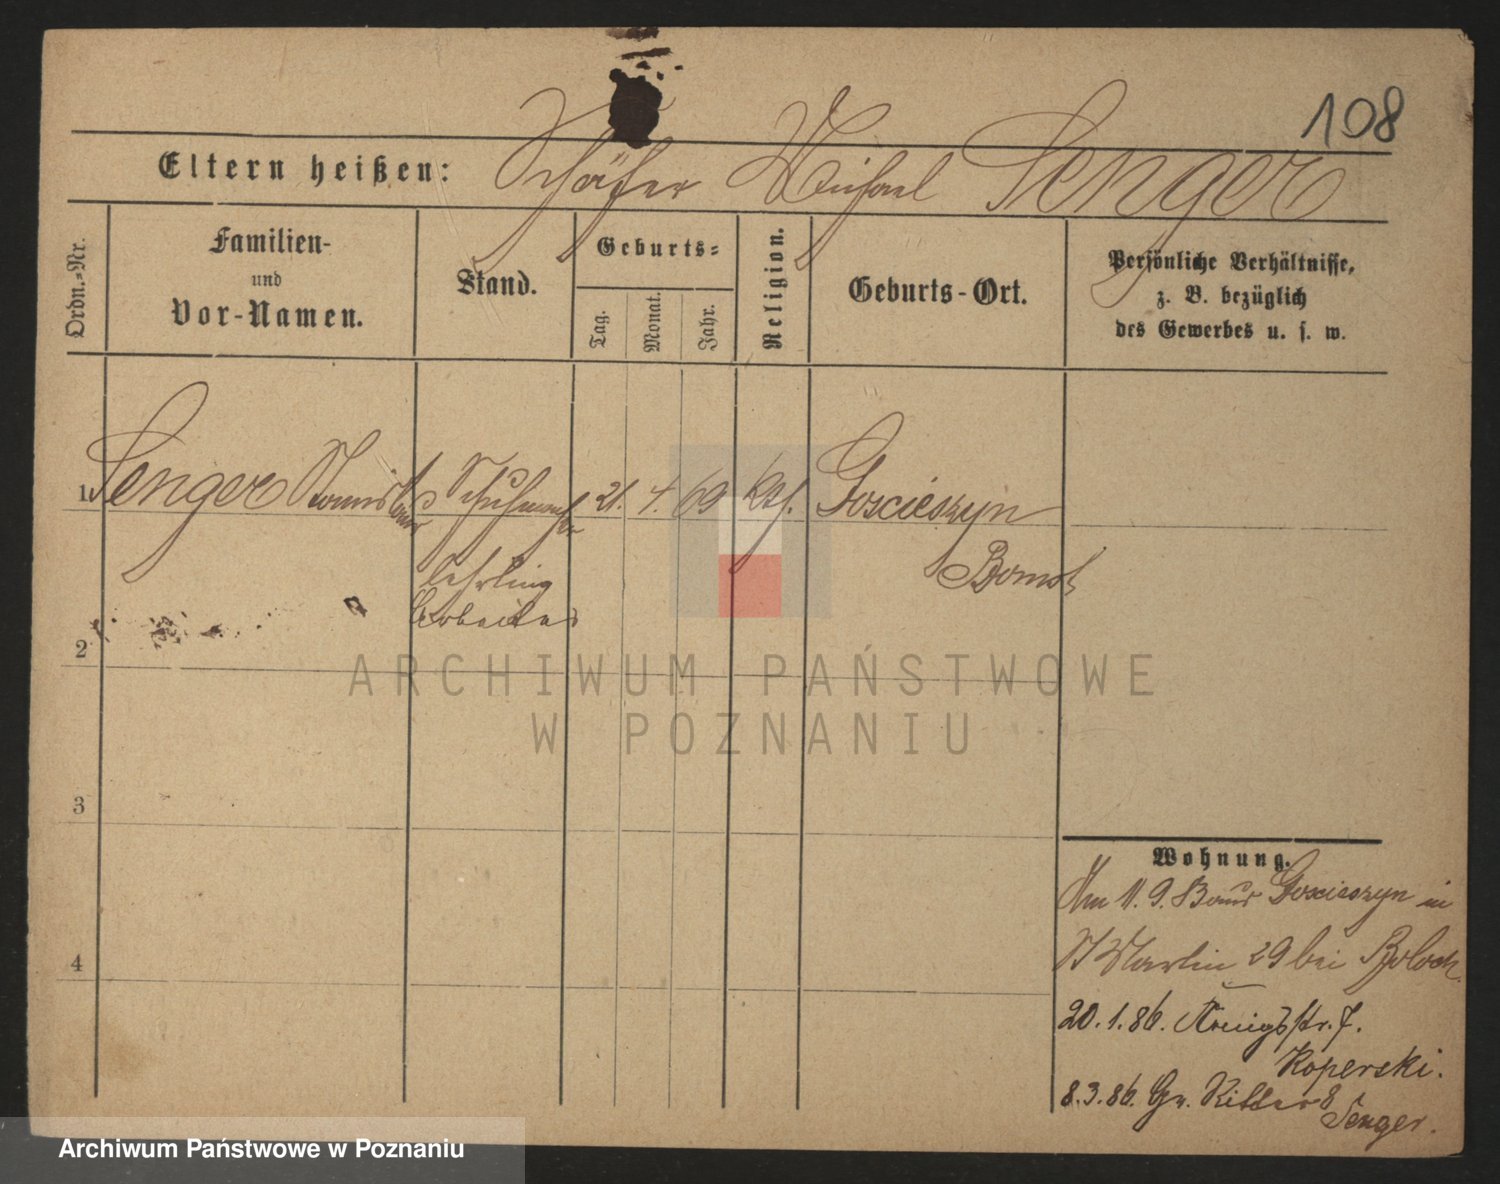 108
Eltern heißen: Schäfer Michael Senger
Ordn.-Nr.
Familien-
und
Vor-Namen.
Stand.
Geburts-
Tag.
Monat.
Jahr.
Religion.
Geburts-Ort.
Persönliche Verhältnisse,
z. B. bezüglich
des Gewerbes u. s. w.
1 Senger Stanislaus Schuhmacher 21. 4. 69 Kth. Goscieszyn
lehrling Bomst
Arbeiter
2
3
4
Wohnung.
Am 11. 9. 8 aus Goscieszyn in
St Martin 29 bei
20. 1. 86. Königsstr. 7.
Koperski.
8. 3. 86. Gr. Ritter 8
Senger.
ARCHIWUM PAŃSTWOWE
W POZNANIU
Archiwum Państwowe w Poznaniu